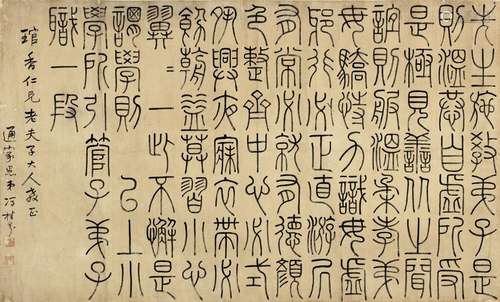 先生施教弟子是
則溫恭自虛所受
是極見譱从之聞
誼則服溫柔孝弟
毋驕恃力識毋虛
邪行必正直游凥
有常必就有德顏
色整齊中心必式
夙興夜寐衣帶必
飭朝益莫習小心
翼=一此不懈是
謂學則 㠯上小
學所引管子弟子
職一段
琯香仁兄老夫子大人教正
通家愚弟馮桂芬